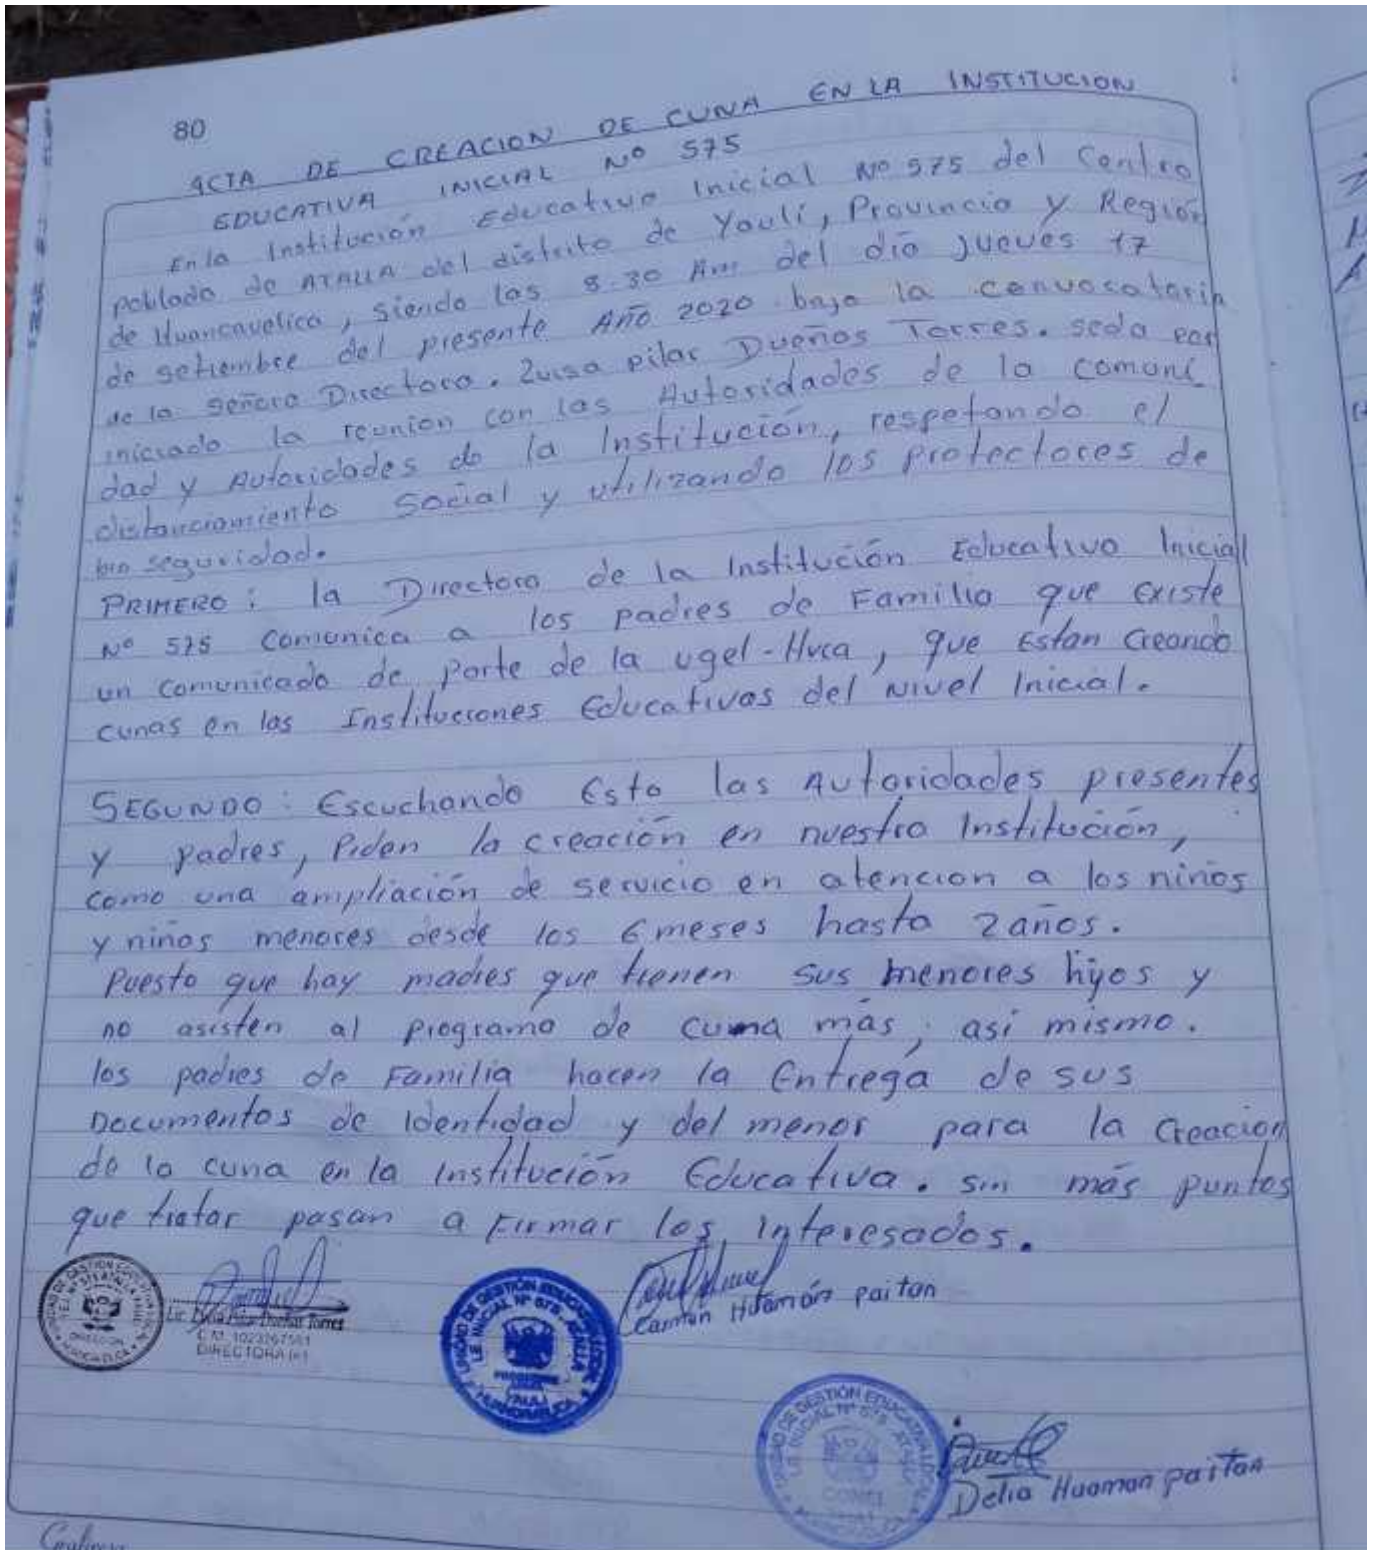 80
ACTA DE CREACION DE CUNA EN LA INSTITUCION
EDUCATIVA INICIAL Nº 575
En la Institución Educativa Inicial Nº 575 del Centro
poblado de ATALLA del distrito de Yauli, Provincia y Región
de Huancavelica, siendo las 8:30 Am del día jueves 17
de setiembre del presente Año 2020 bajo la convocatoria
de la señora Directora. Luisa pilar Dueñas Torres. se da por
iniciado la reunion con las Autoridades de la comuni
dad y Autoridades de la Institución, respetando el
distanciamiento Social y utilizando los protectores de
bio seguridad.
PRIMERO: la Directora de la Institución Educativa Inicial
Nº 575 comunica a los padres de Familia que existe
un comunicado de parte de la ugel-Hvca, que Estan Creando
cunas en las Instituciones Educativas del Nivel Inicial.
SEGUNDO: Escuchando Esto las Autoridades presentes
y padres, Piden la creación en nuestra Institución,
como una ampliación de servicio en atencion a los niños
y niñas menores desde los 6 meses hasta 2 años.
Puesto que hay madres que tienen sus menores hijos y
no asisten al programa de cuna más, así mismo.
los padres de Familia hacen la Entrega de sus
Documentos de Identidad y del menor para la Creacion
de la cuna en la Institución Educativa. sin más puntos
que tratar pasan a Firmar los interesados.
UNIDAD DE GESTION EDUCATIVA LOCAL
DIRECCION
HUANCAVELICA
Lic. Pilar Dueñas Torres
DIRECTORA (e)
UNIDAD DE GESTIÓN EDUCATIVA LOCAL
I.E. INICIAL Nº 575 - ATALLA
YAULI
HUANCAVELICA
Carmen Huamán paitan
UNIDAD DE GESTIÓN EDUCATIVA LOCAL
I.E. INICIAL Nº 575 - ATALLA
CONEI
Delia Huaman paitan